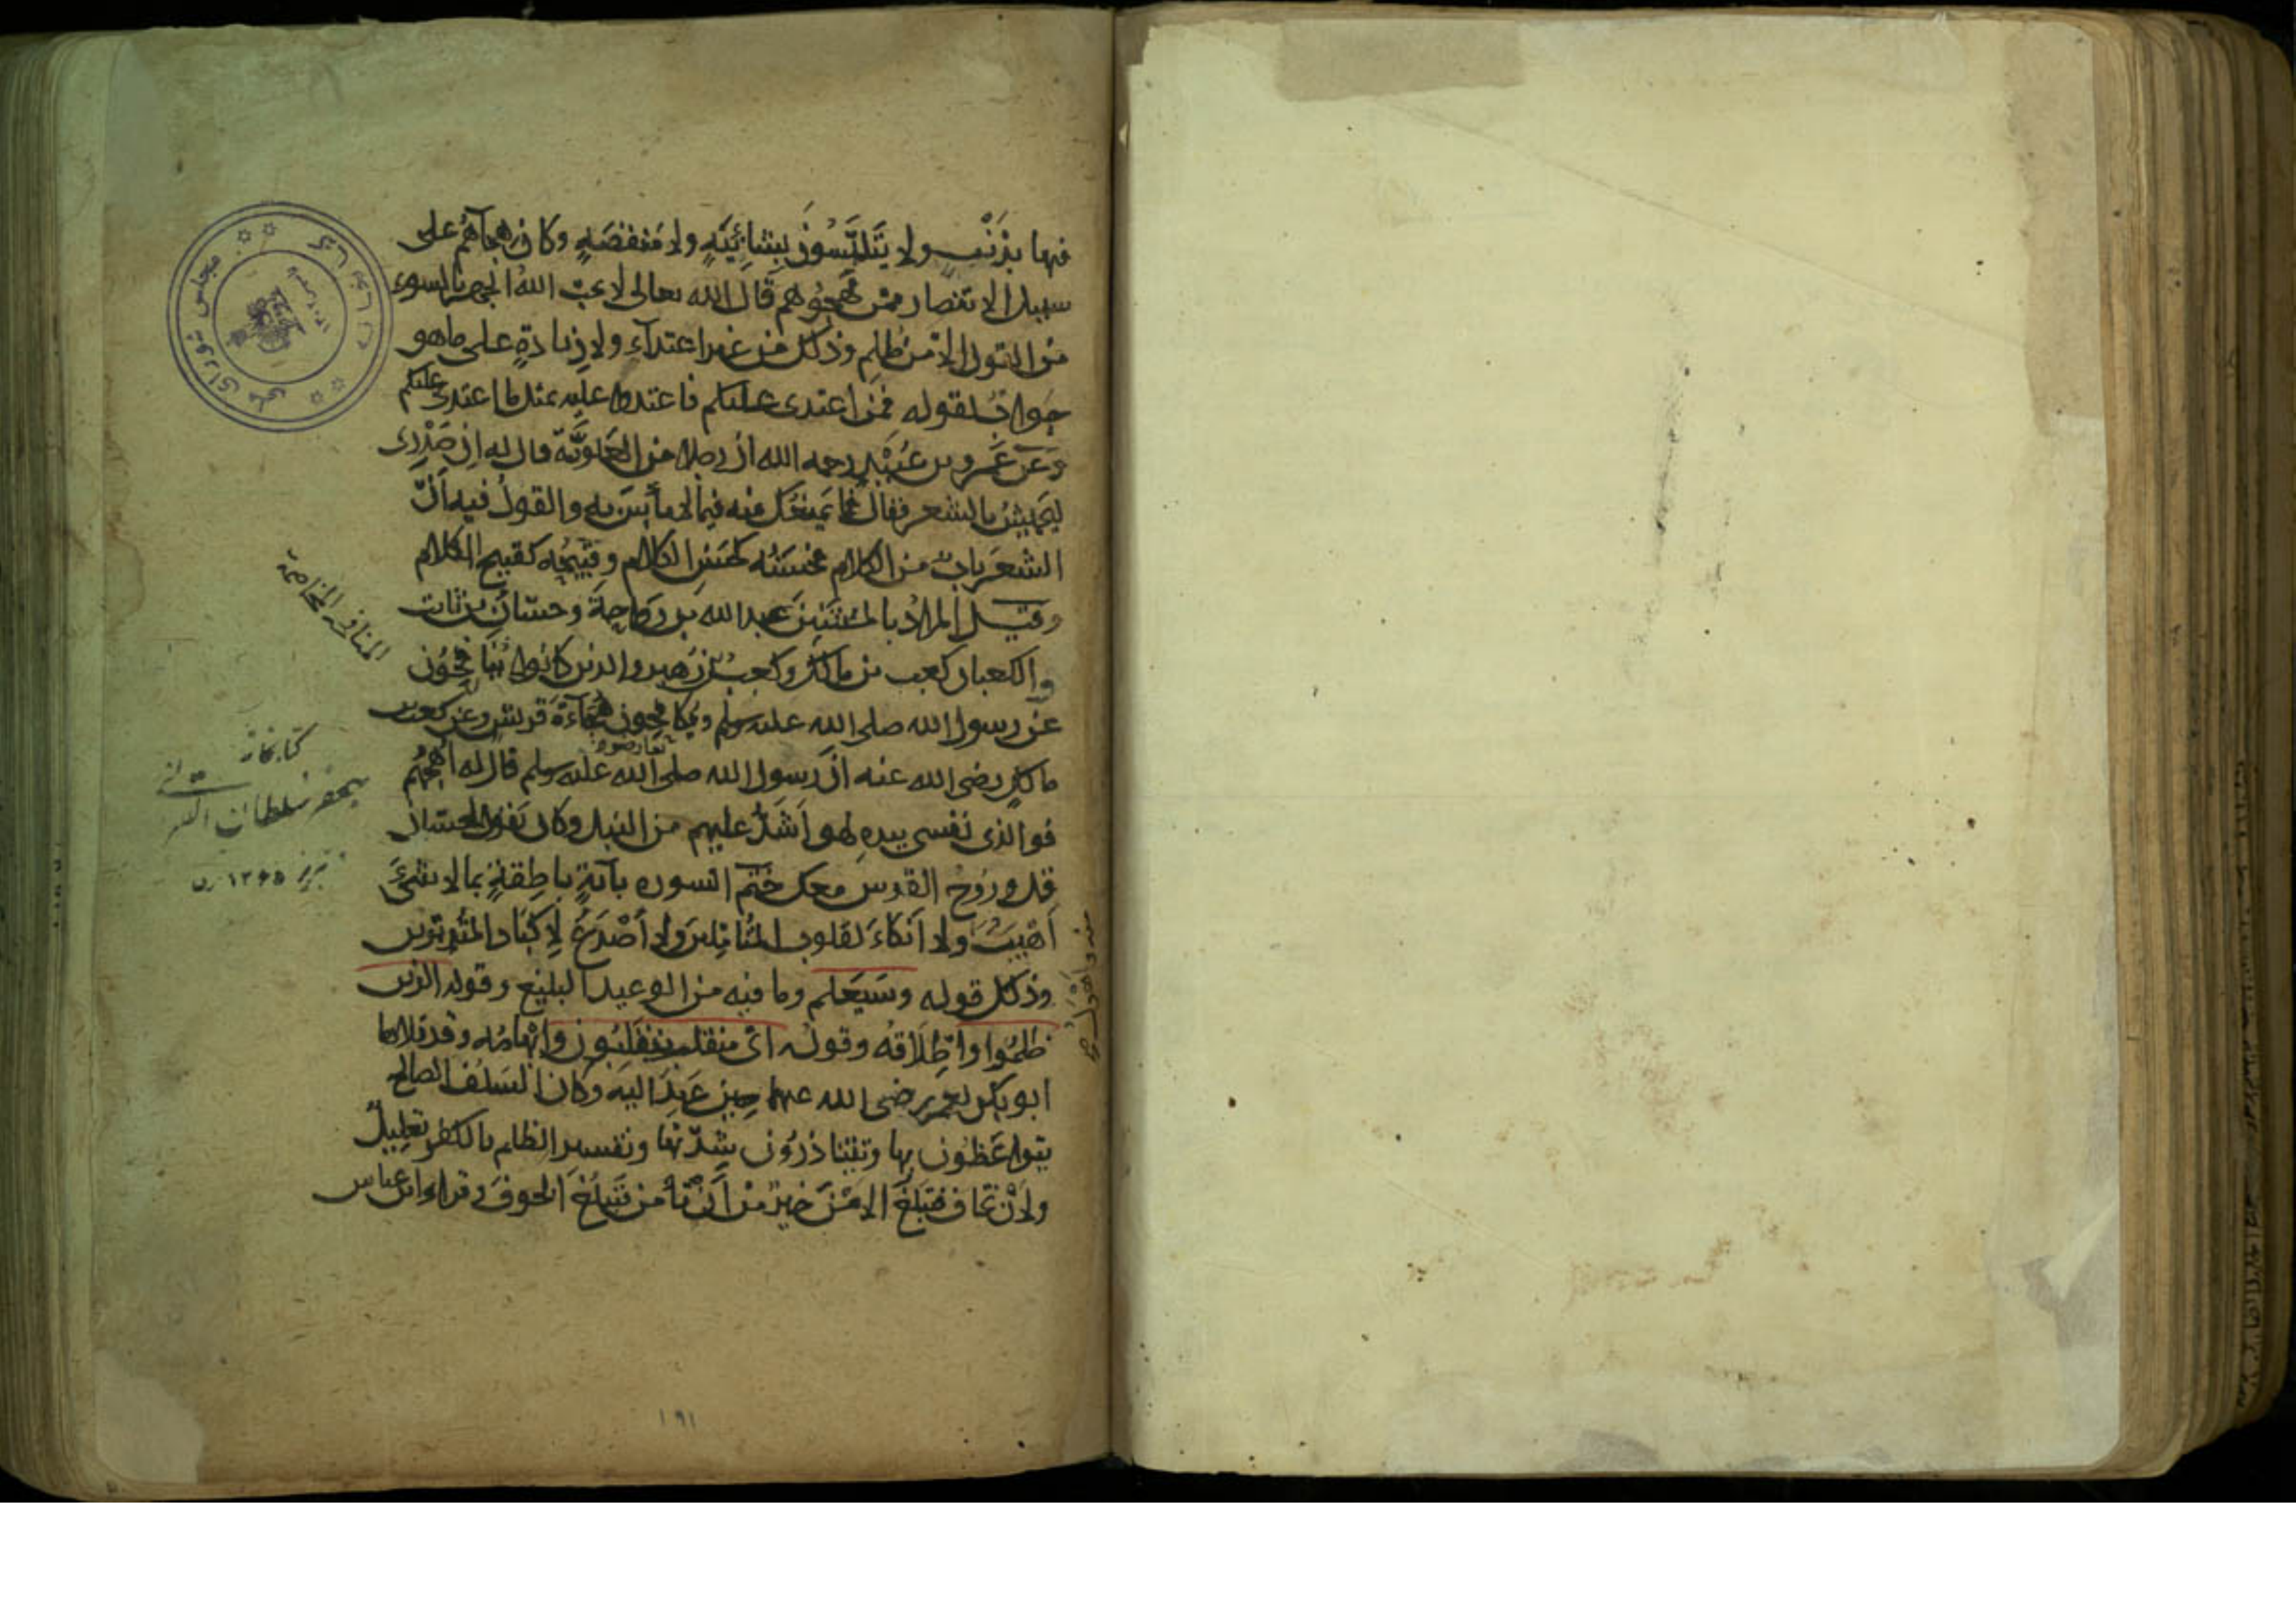 فيها بذَنْب ولا يَتَلَبَّسُونَ بِشَائِبَةٍ ولا مَنْقَصَةٍ وكان هجآؤهم على
سبيل الانتصار ممن يهجُوهم قال الله تعالى لا يحبّ اللهُ الجهر بالسوء
من القول الا من ظُلِم وذلك من غير اعتدآءٍ ولا زيادةٍ على ما هو
جوابٌ لقوله فمن اعتدى عليكم فاعتدوا عليه بمثل ما اعتدى عليكم
وعَن عَمرو بن عُبَيْدٍ رحمه الله ان رجلا من العَلَويَّة قال له ان صَدْرِى
ليجيشُ بالشعر فقال فما يَمنعُك منه فيما لا بأسَ به والقولُ فيه أنّ
الشعَر بابٌ من الكلام فحسَنُه كحسَنِ الكلام وقبيحُه كقبيح الكلام
وقيل المرادُ بالمستثنينَ عبد الله بن رواحةَ وحسّانُ بن ثابت
والكعبان كعب بن مالك وكعب بن زهير والذين كانوا يُنافِحُون
عن رسول الله صلى الله عليه وسلم ويُكافِحون هُجَاةَ قريش وعن كعب بن
مالكٍ رضى الله عنه انّ رسول الله صلى الله عليه وسلم قال له اُهْجُهُم
فوالذى نفسى بيدهِ لهو اَشَدُّ عليهم من النبل وكان يقول لحسّان
قل ورُوحُ القدس معك ختَمَ السورة بآيةٍ ناطِقةٍ بما لا شىءَ
اَهْيَبُ ولا اَنكاءَ لقلوب المُتأمّلين ولا أَصْدَعُ لاكبَاد المتدبّرين
وذلك قوله وسَيَعلم وما فيه من الوعيد البليغ وقوله الذين
ظلمُوا واطْلَاقُه وقولُه اىّ منقلب ينقلبُون وإبْهامُه وقد تلاها
ابو بكر لعمر رضى الله عنهما حين عَهِدَ اليه وكان السَلَفُ الصالح
يتواعَظُون بها ويتناذرُون شِدّتها وتفسير الظلم بالكفر تعليلٌ
ولاَنْ تخاف فتبلُغَ الامْنَ خيرٌ من أن تأمن فتبلُغَ الخوفَ وقراء ابن عباس
المنافحة المخاصمة
كتابخانه
جعفر سلطان القرائى
تبريز ١٣٤٥
منه واَهْوَل
مجلس شوراى ملى
١٩١